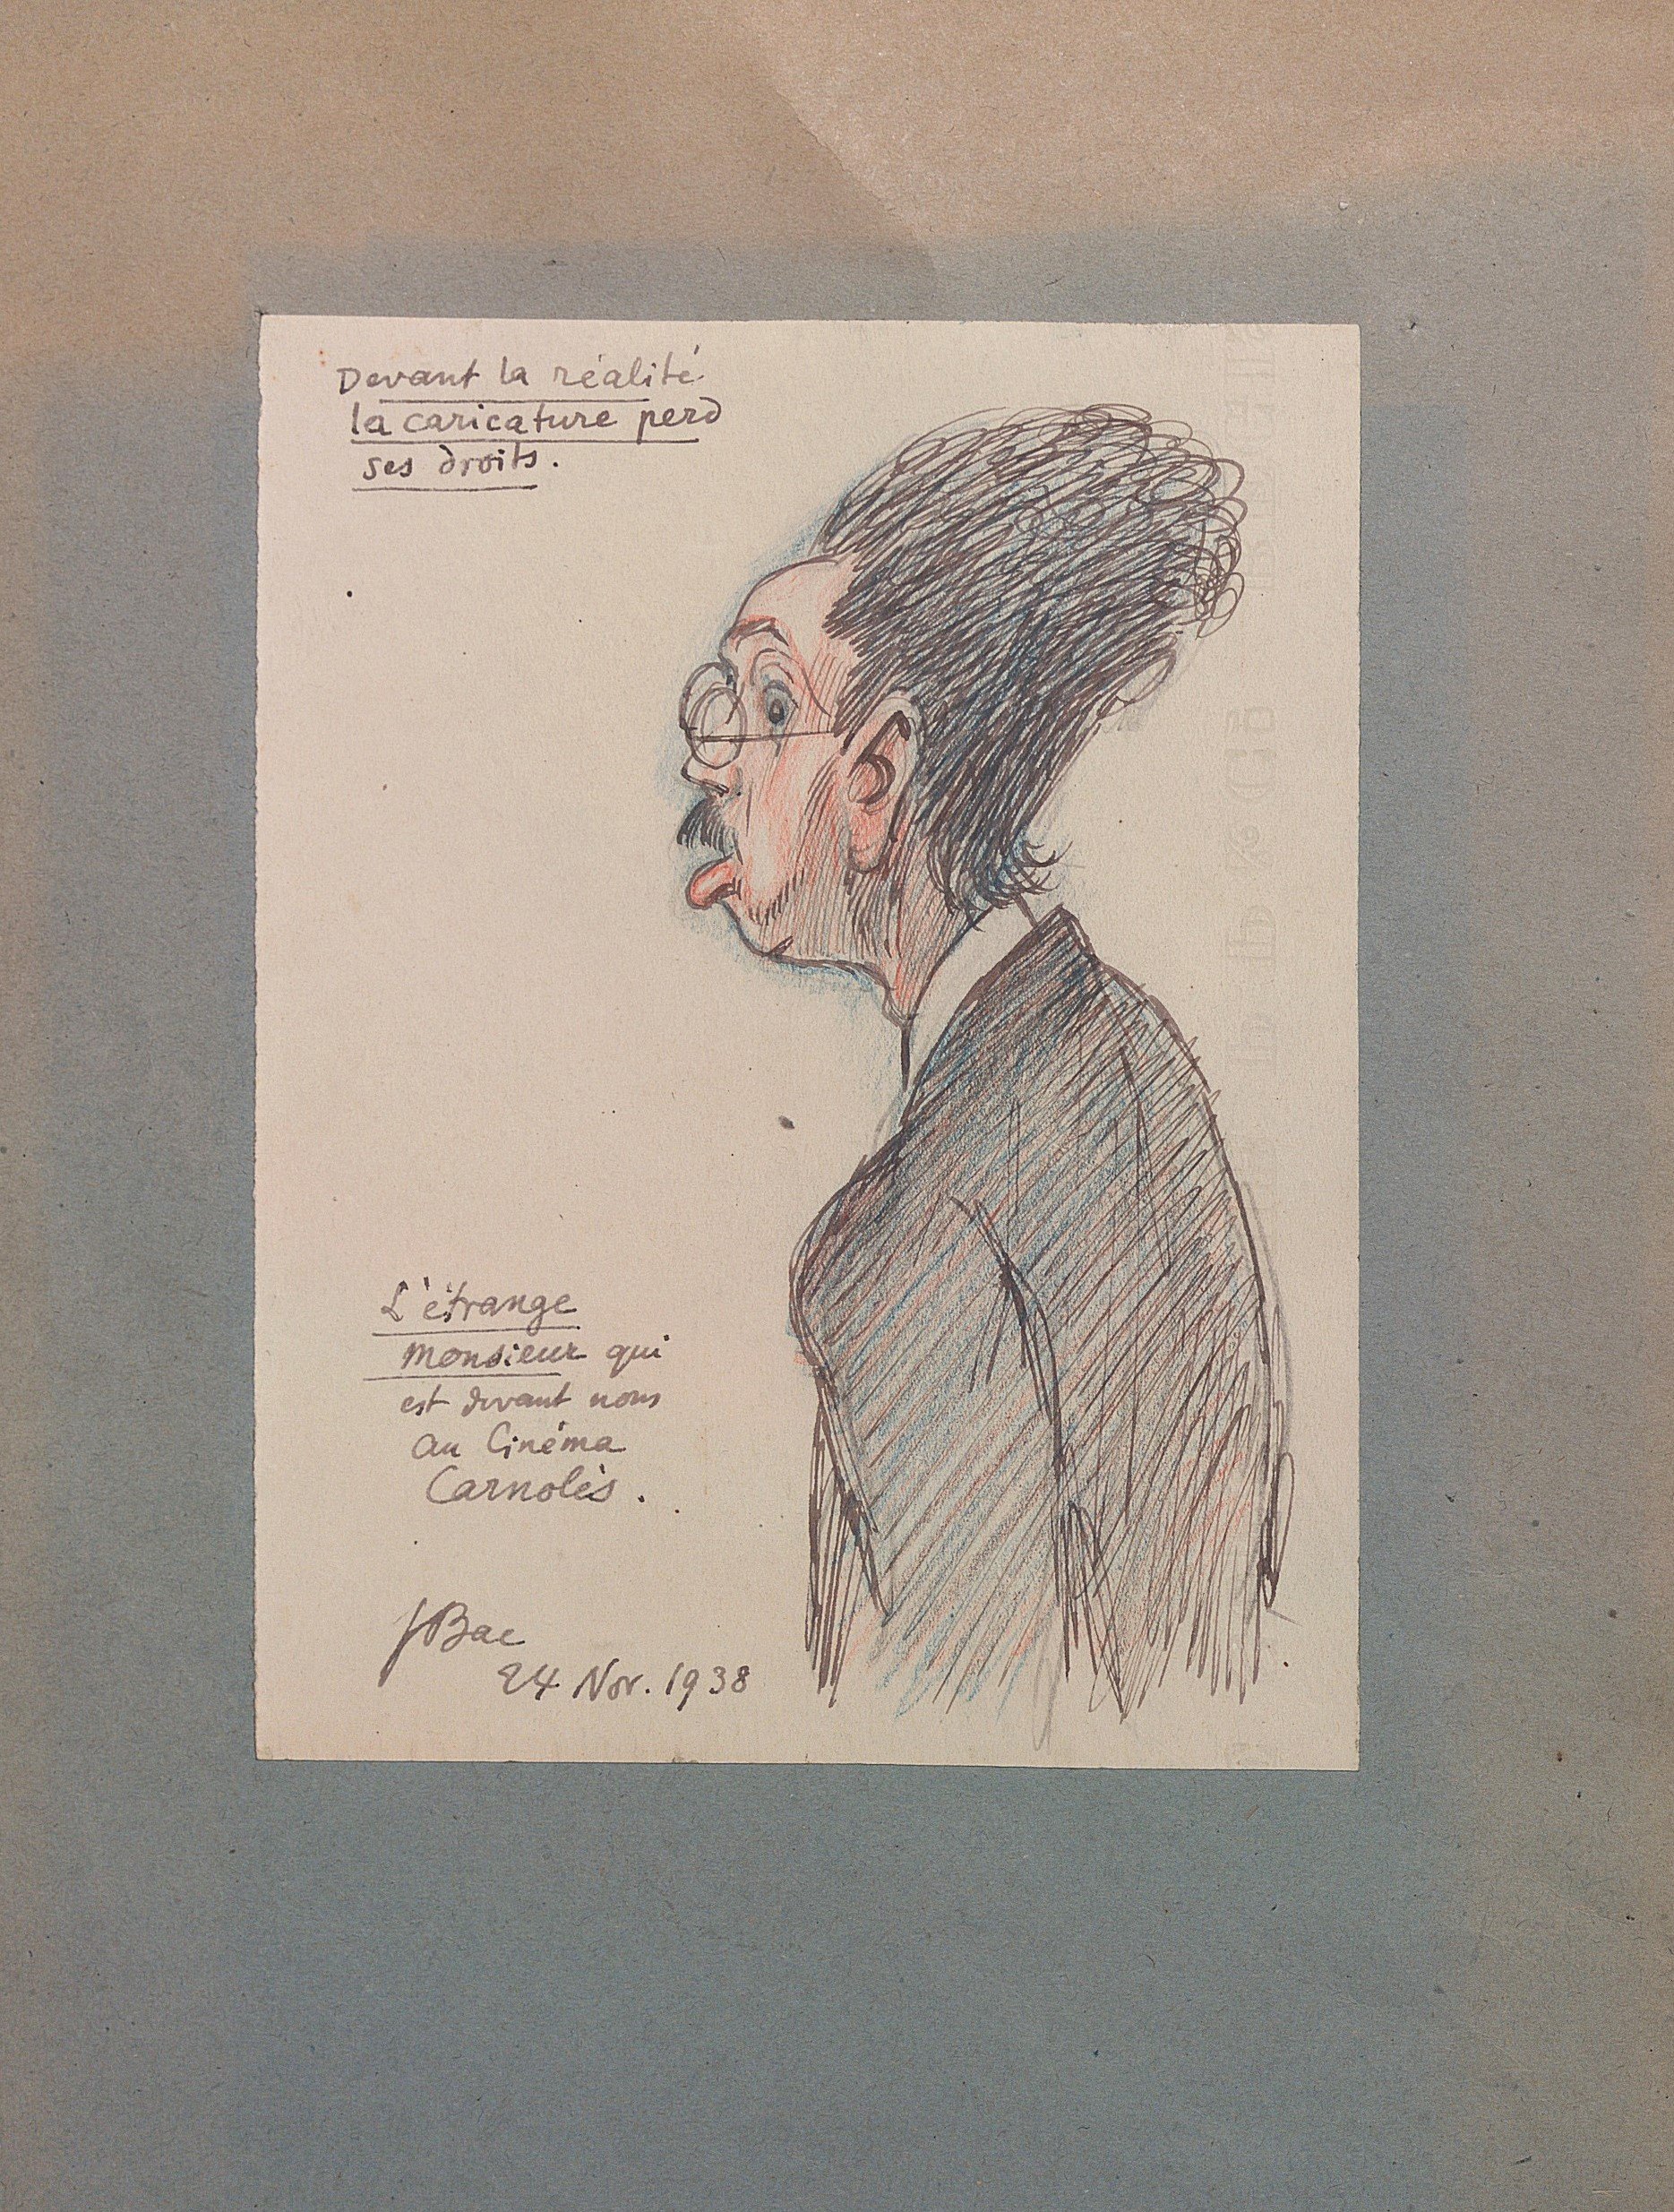 Devant la réalité
la caricature perd
ses droits.
L'étrange
monsieur qui
est devant nous
au Cinéma
Carnolès.
FBac
24 Nov. 1938